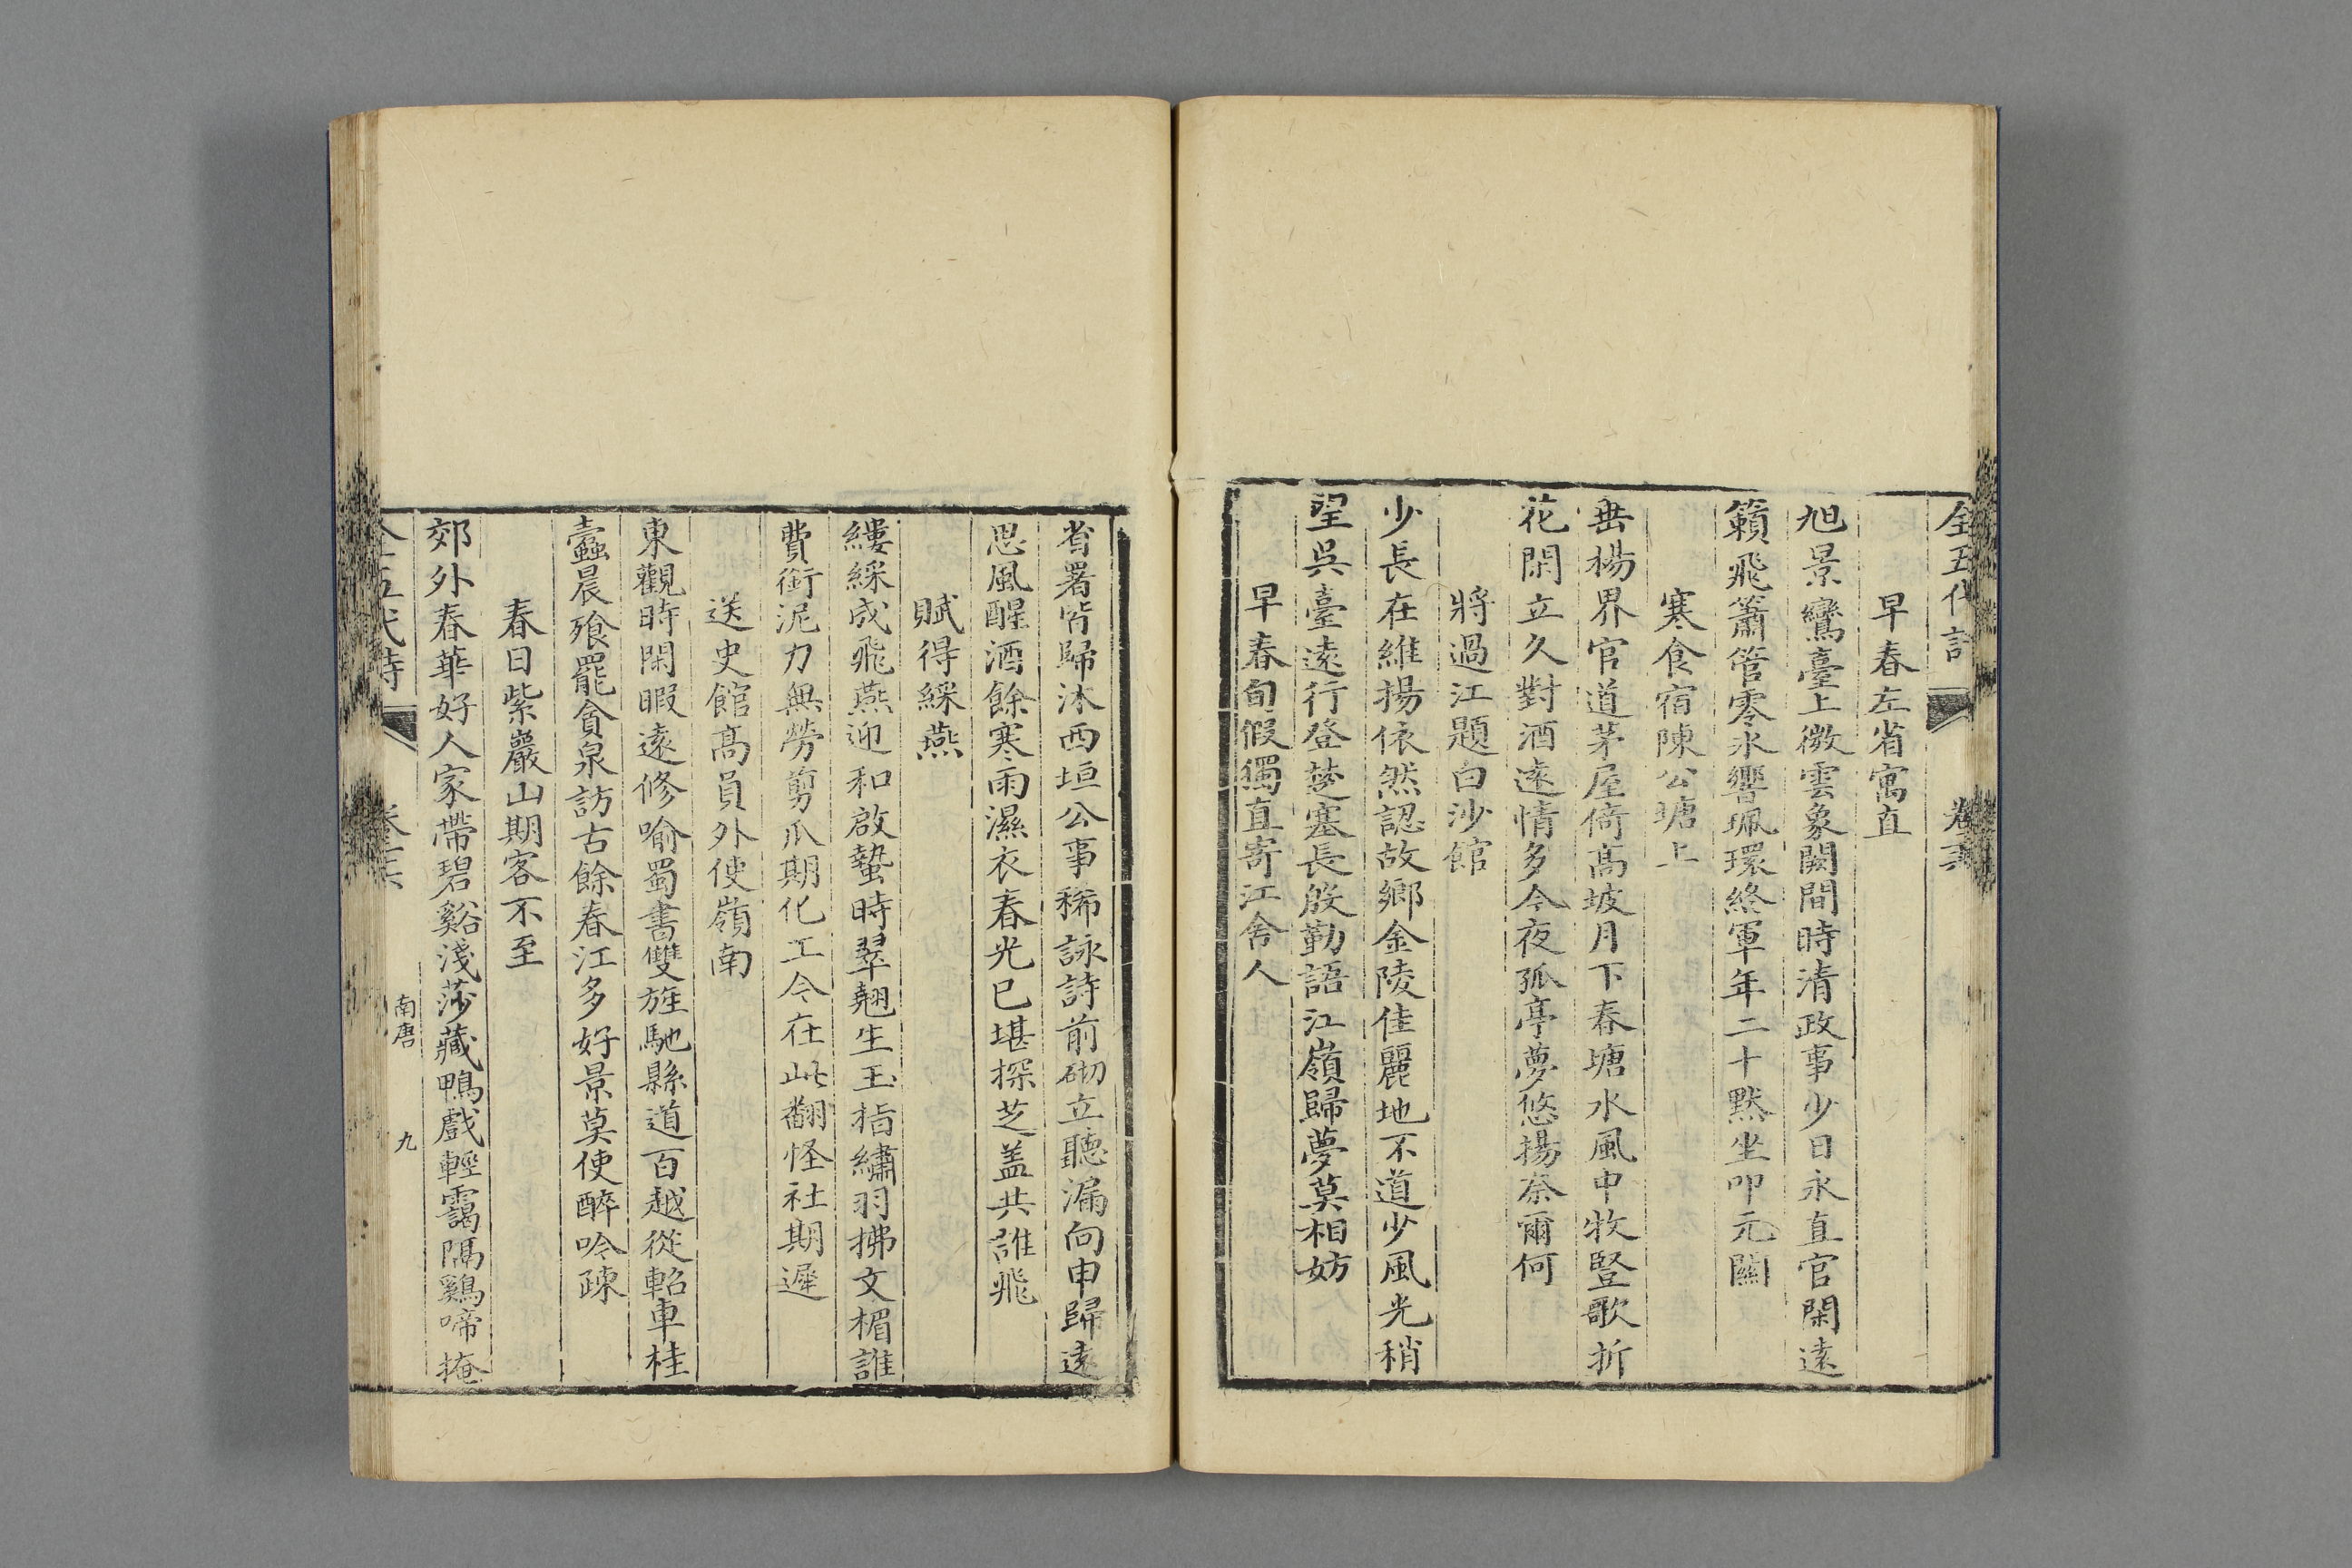 全五代詩
早春左省寓直
旭景鸞臺上微雲象闕間時清政事少日永直官閑遠
籟飛簫管零氷響珮環終軍年二十黙坐叩元關
寒食宿陳公塘上
垂楊界官道茅屋倚髙坡月下春塘水風中牧豎歌折
花閑立久對酒遠情多今夜孤亭夢悠揚奈爾何
將過江題白沙館
少長在維揚依然認故鄉金陵佳麗地不道少風光稍
望吳臺遠行登楚塞長殷勤語江嶺歸夢莫相妨
早春旬假獨直寄江舍人
省署皆歸沐西垣公事稀詠詩前砌立聽漏向申歸遠
思風醒酒餘寒雨濕衣春光已堪探芝盖共誰飛
賦得綵燕
縷綵成飛燕迎和啟蟄時翠翹生玉指繡羽拂文楣誰
費銜泥力無勞剪爪期化工今在此翻怪社期遲
送史館髙員外使嶺南
東觀時閑暇遠修喻蜀書雙旌馳縣道百越從軺車桂
蠹晨飱罷貪泉訪古餘春江多好景莫使醉吟疎
春日紫巖山期客不至
郊外春華好人家帶碧谿淺莎藏鴨戲輕靄隔鷄啼掩
南唐
九